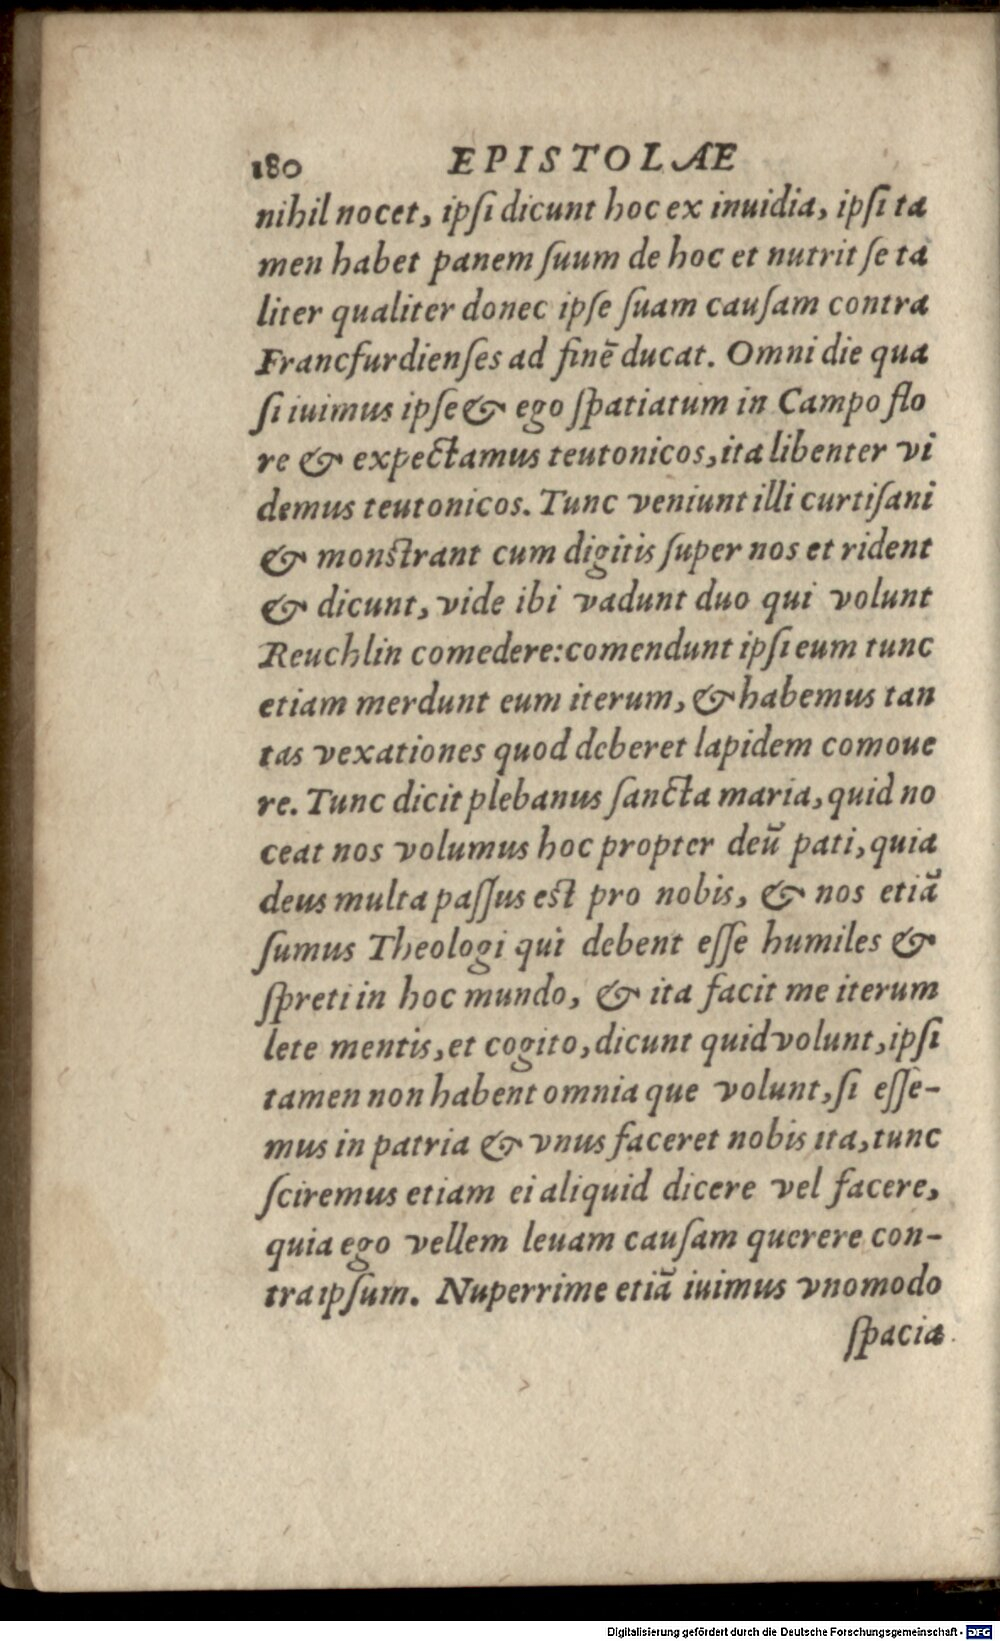 180 EPISTOLÆ
nihil nocet, ipſi dicunt hoc ex inuidia, ipſi ta
men habet panem ſuum de hoc et nutrit ſe ta
liter qualiter donec ipſe ſuam cauſam contra
Francfurdienſes ad finē ducat. Omni die qua
ſi iuimus ipſe & ego ſpatiatum in Campo flo
re & expectamus teutonicos, ita libenter vi
demus teutonicos. Tunc veniunt illi curtiſani
& monſtrant cum digitis ſuper nos et rident
& dicunt, vide ibi vadunt duo qui volunt
Reuchlin comedere: comendunt ipſi eum tunc
etiam merdunt eum iterum, & habemus tan
tas vexationes quod deberet lapidem comoue
re. Tunc dicit plebanus ſancta maria, quid no
ceat nos volumus hoc propter deū pati, quia
deus multa paſſus eſt pro nobis, & nos etiā
ſumus Theologi qui debent eſſe humiles &
ſpreti in hoc mundo, & ita facit me iterum
lete mentis, et cogito, dicunt quid volunt, ipſi
tamen non habent omnia que volunt, ſi eſſe-
mus in patria & vnus faceret nobis ita, tunc
ſciremus etiam ei aliquid dicere vel facere,
quia ego vellem leuam cauſam querere con-
tra ipſum. Nuperrime etiā iuimus vnomodo
ſpacia
Digitalisierung gefördert durch die Deutsche Forschungsgemeinschaft - DFG